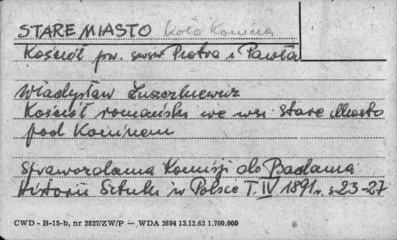 STARE MIASTO koło Konina
Kościół pw. śwśw Piotra i Pawła
Władysław Łuszczkiewicz
Kościół romański we wsi Stare Miasto
pod Koninem
Sprawozdania Komisji do Badania
Historii Sztuki w Polsce T. IV 1891 r. s 23-27
CWD - B-15-b, nr 2827/ZW/P — WDA 2694 13.12.62 1.700.000